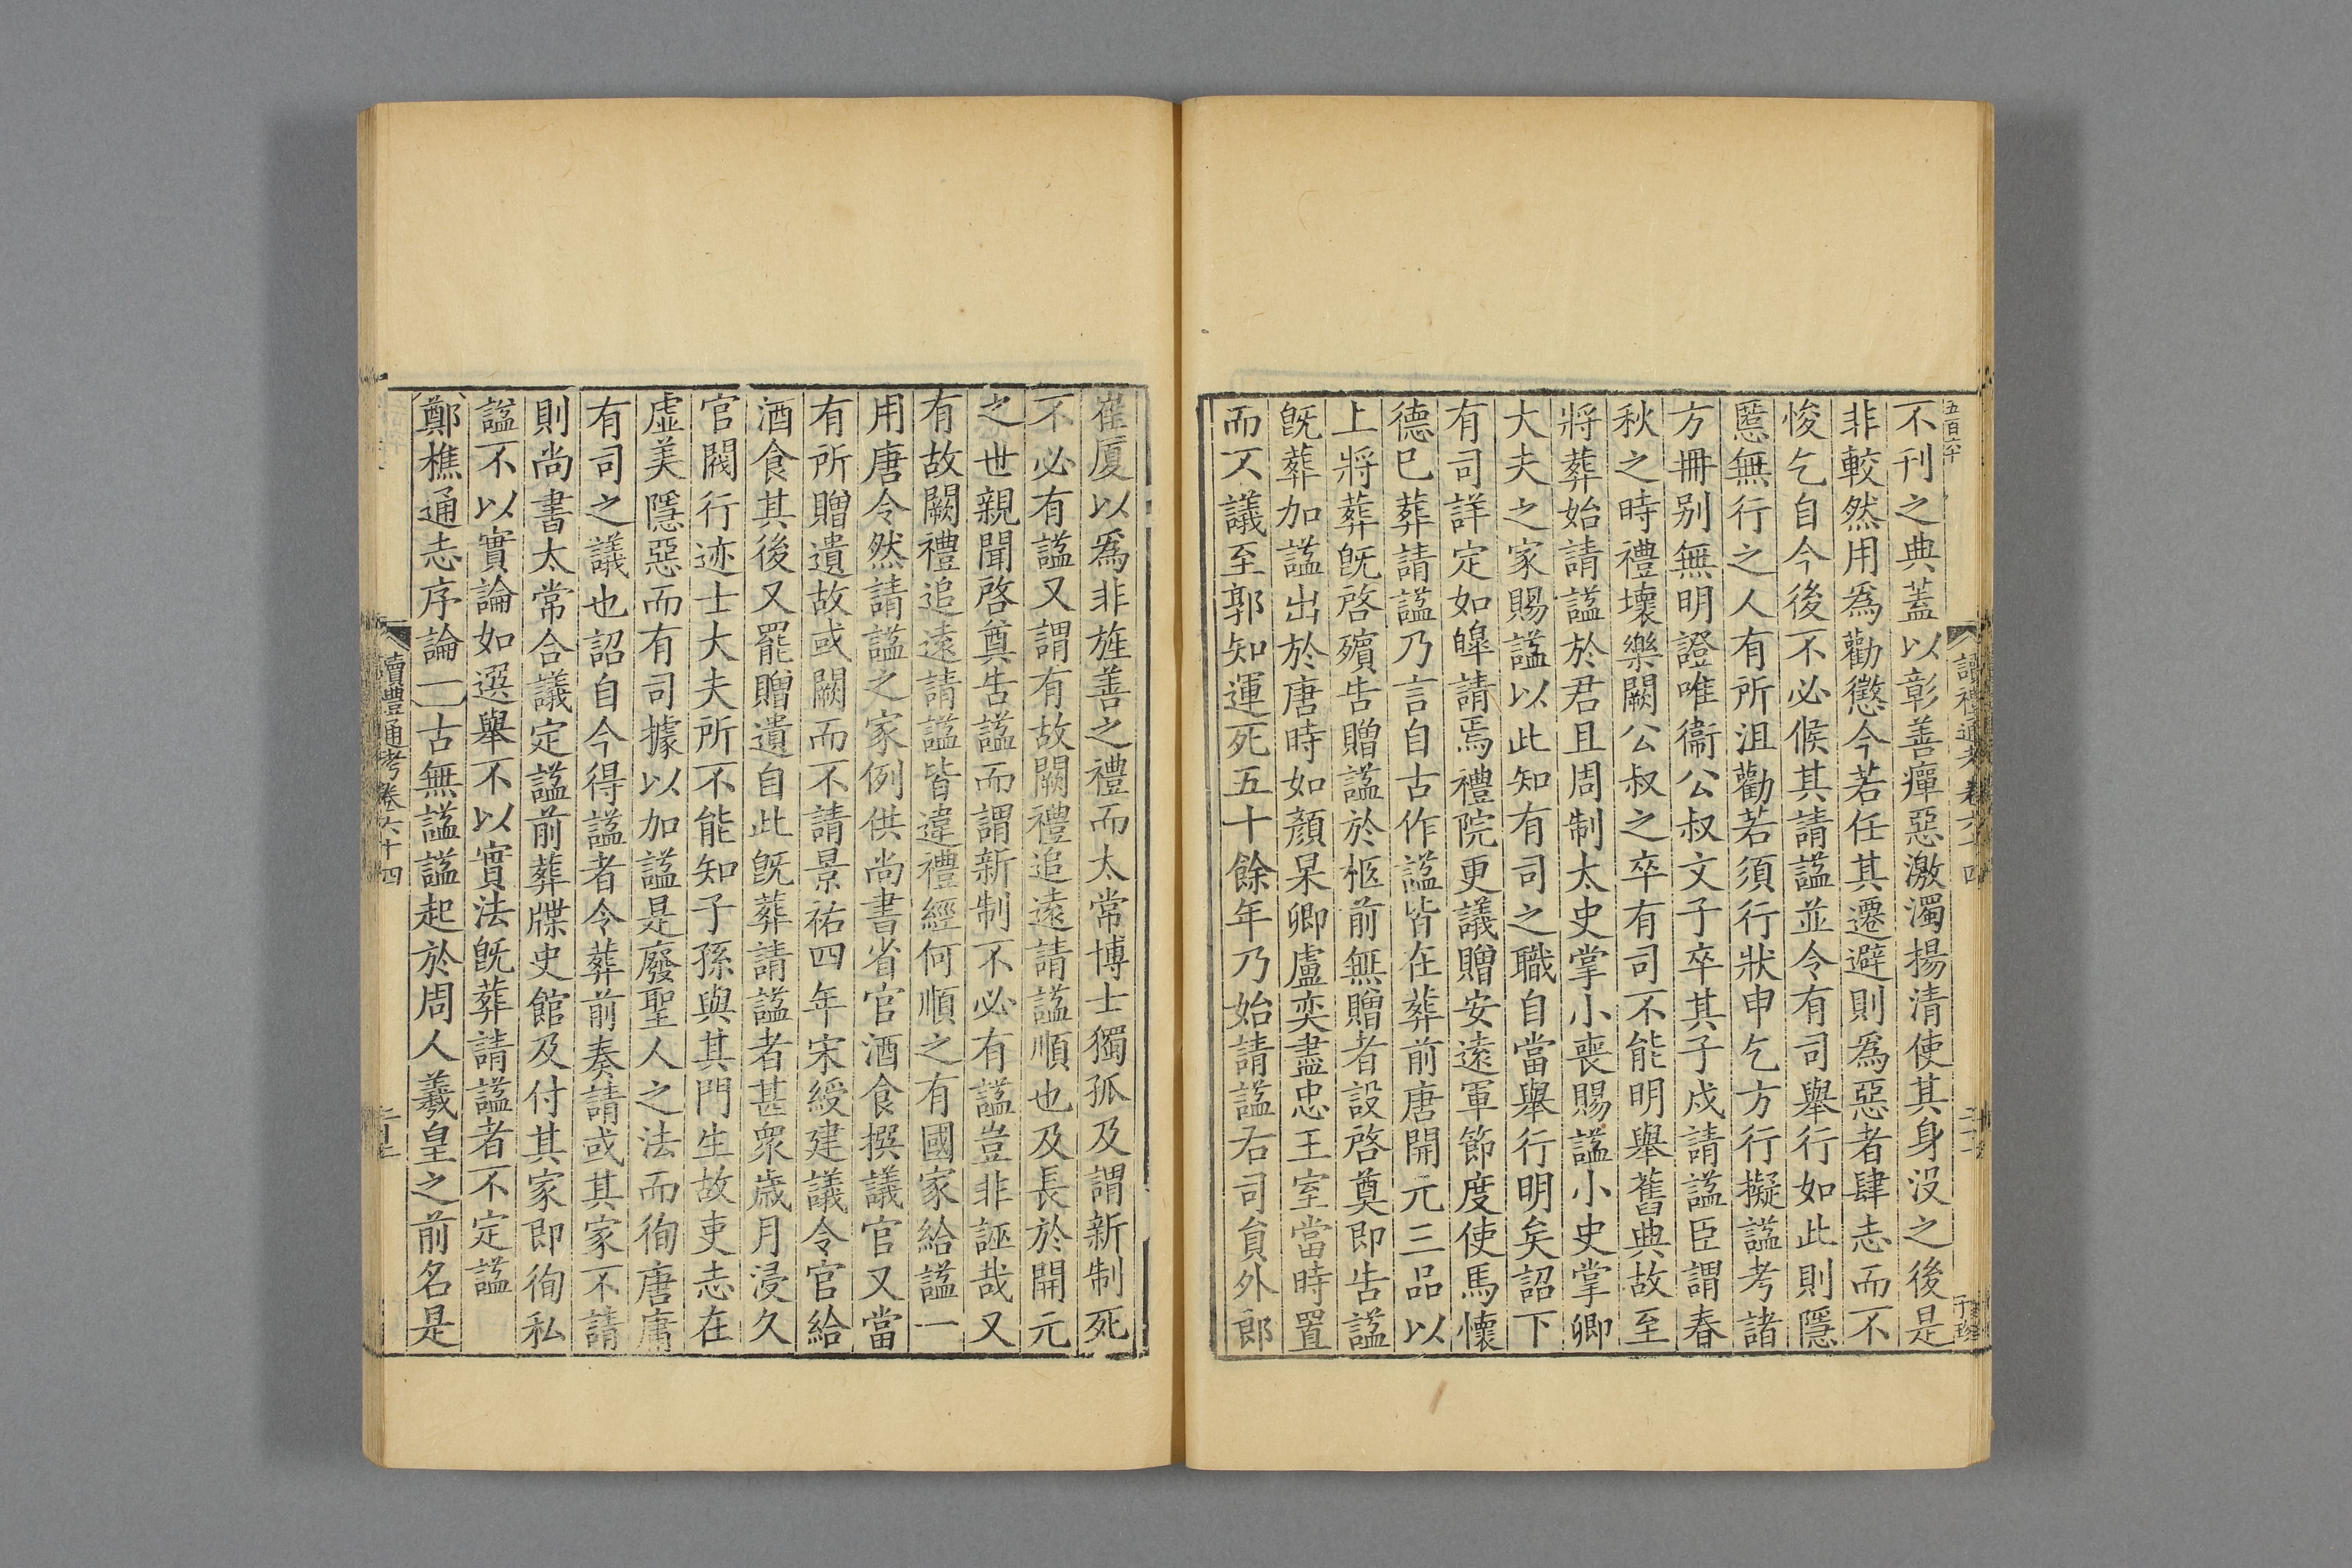 五百六十
讀禮通考卷六十四
不刊之典蓋以彰善癉惡激濁揚清使其身没之後是
非較然用爲勸懲今若任其遷避則爲惡者肆志而不
悛乞自今後不必候其請諡並令有司舉行如此則隱
慝無行之人有所沮勸若須行狀申乞方行擬諡考諸
方冊别無明證唯衞公叔文子卒其子戍請諡臣謂春
秋之時禮壞樂闕公叔之卒有司不能明舉舊典故至
將葬始請諡於君且周制太史掌小喪賜諡小史掌卿
大夫之家賜諡以此知有司之職自當舉行明矣詔下
有司詳定如皞請焉禮院更議贈安遠軍節度使馬懷
德已葬請諡乃言自古作諡皆在葬前唐開元三品以
上將葬旣啓殯告贈諡於柩前無贈者設啓奠即告諡
旣葬加諡出於唐時如顏杲卿盧奕盡忠王室當時置
而不議至郭知運死五十餘年乃始請諡右司員外郎
崔厦以爲非旌善之禮而太常博士獨孤及謂新制死
不必有諡又謂有故闕禮追遠請諡順也及長於開元
之世親聞啓奠告諡而謂新制不必有諡豈非誣哉又
有故闕禮追遠請諡皆違禮經何順之有國家給諡一
用唐令然請諡之家例供尚書省官酒食撰議官又當
有所贈遺故或闕而不請景祐四年宋綬建議令官給
酒食其後又罷贈遺自此旣葬請諡者甚衆歲月浸久
官閥行迹士大夫所不能知子孫與其門生故吏志在
虛美隱惡而有司據以加諡是廢聖人之法而徇唐庸
有司之議也詔自今得諡者令葬前奏請或其家不請
則尚書太常合議定諡前葬牒史館及付其家即徇私
諡不以實論如選舉不以實法旣葬請諡者不定諡
鄭樵通志序論一古無諡諡起於周人羲皇之前名是
讀禮通考卷六十四